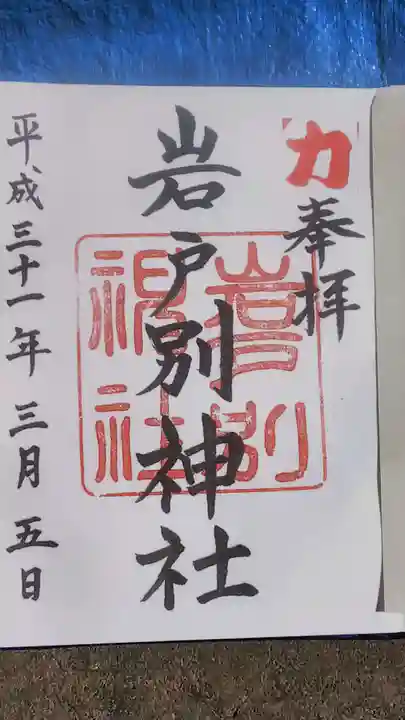 力
奉拝
岩戸別神社
岩戸別
神社
平成三十一年三月五日